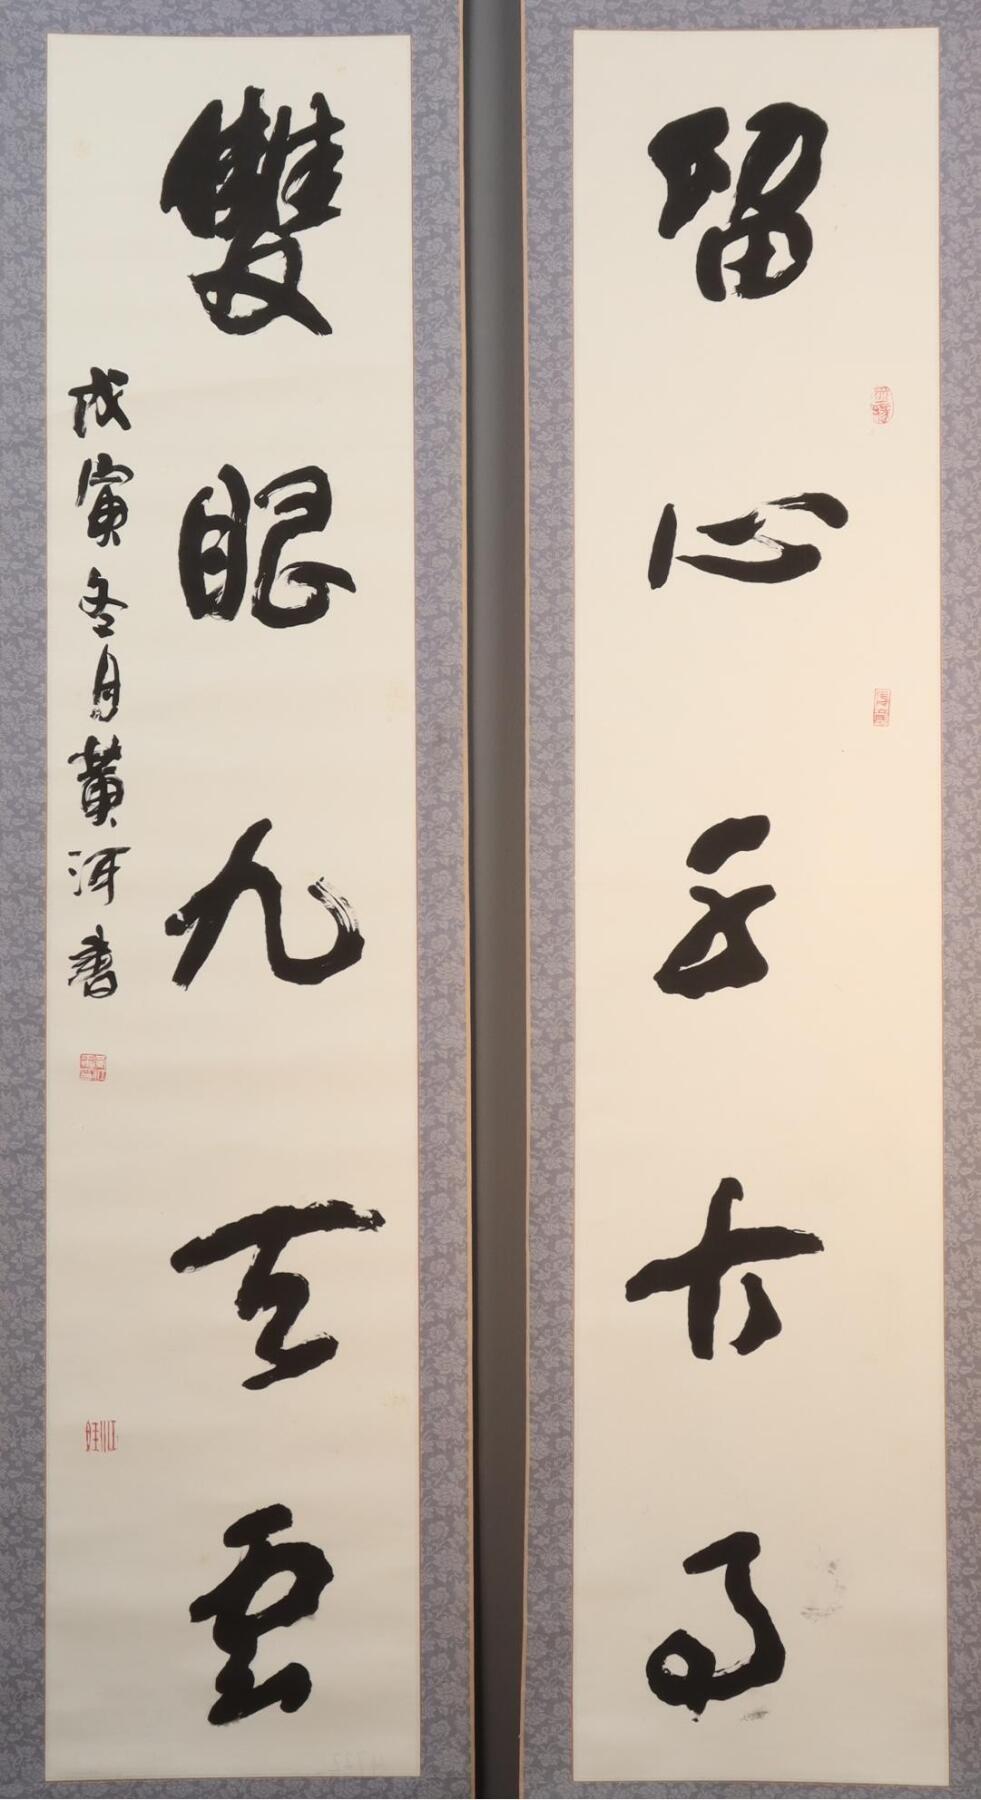 留心千古事
雙眼九天雲
戊寅冬月黄河書